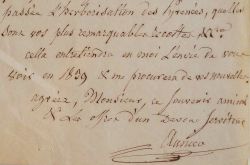 passée l'herborisation des Pyrenées, quelles
sont vos plus remarquables recoltes &c.
cella entretiendra en moi l'envie de vous
voir en 1859 & me procurera de vos nouvelles
agréez, Monsieur, le souvenir amical
& les offres d'un devoué serviteur